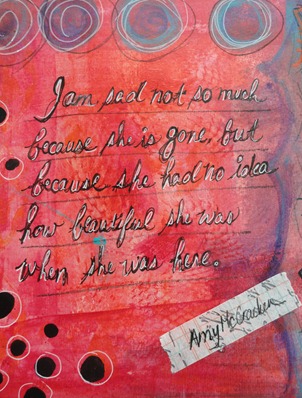 I am sad not so much
because she is gone, but
because she had no idea
how beautiful she was
when she was here.
Amy McCracken